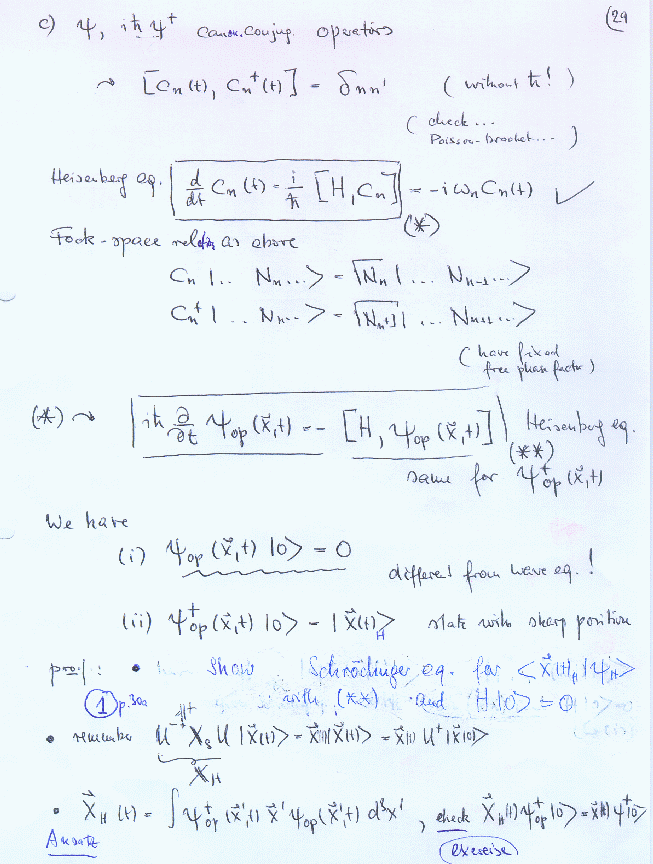 (29
c) Ψ, iħ Ψ⁺ canon. conjug. operators
⤳ [Cn(t), Cn⁺(t)] = δnn' (without ħ!)
(check ... Poisson-bracket...)
Heisenberg eq. d/dt Cn(t) = i/ħ [H, Cn] = -iωn Cn(t) ✓
(*)
Fock-space relations as above
Cn |.. Nn...> = √Nn |... Nn-1...>
Cn⁺ |.. Nn...> = √Nn+1 |... Nn+1...>
(have fixed free phase factor)
(*) ⤳ iħ ∂/∂t Ψop(x⃗,t) = - [H, Ψop(x⃗,t)] Heisenberg eq.
(**)
same for Ψ⁺op(x⃗,t)
We have
(i) Ψop(x⃗,t) |0> = 0 different from wave eq.!
(ii) Ψ⁺op(x⃗,t) |0> = |x⃗(t)>H state with sharp position
proof: • Show Schrödinger eq. for <x⃗(t)H|ΨH>
① p.30a with (**) and (H|0> = 0)
• remember U⁺ Xs U |x⃗(t)> = x⃗(t)|x⃗(t)> = x⃗(t) U⁺|x⃗(0)>
XH
• X⃗H(t) = ∫ Ψ⁺op(x⃗',t) x⃗' Ψop(x⃗',t) d³x' , check X⃗H(t) Ψ⁺op|0> = x⃗(t) Ψ⁺|0>
Ansatz exercise